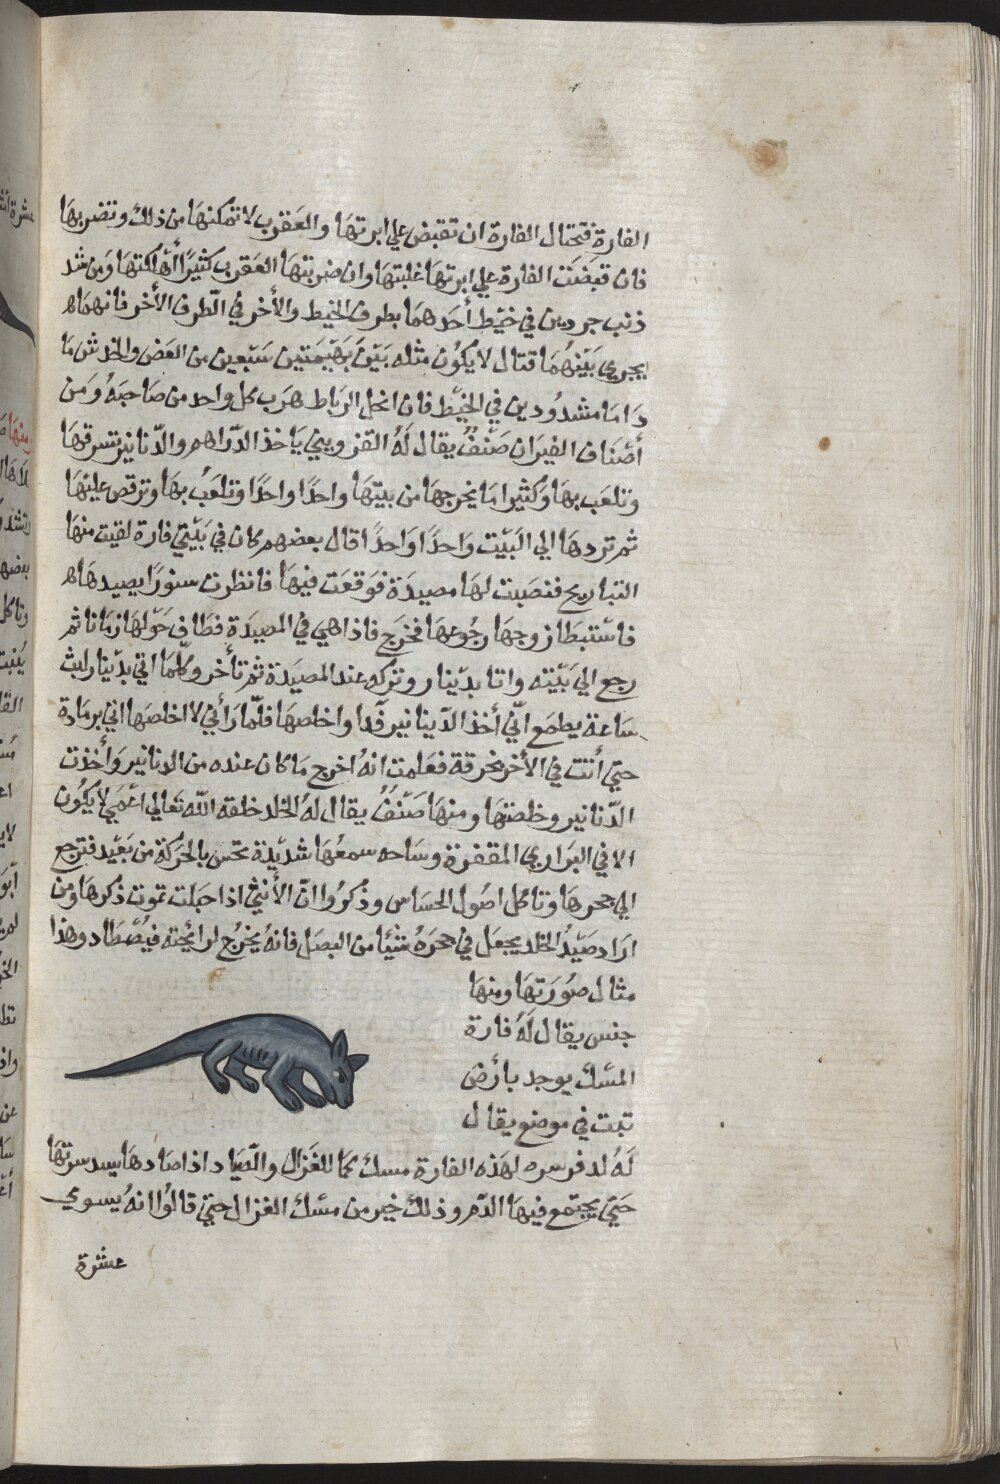 الفارة فتحتال الفارة ان تقبض علي ابرتها والعقرب لا تمكنها من ذلك وتضربها
فان قبضت الفارة علي ابرتها غلبتها وان ضربتها العقرب كثيرًا أهلكتها ومن شد
ذنب جردين في خيط أحدهما بطرف الخيط والأخر في الطرف الأخر فانهما
يجري بينهما قتال لا يكون مثله بين بهيمتين سبعين من العض والخدش ما
داما مشدودين في الخيط فان انحل الرباط هرب كل واحد من صاحبه ومن
أصناف الفيران صنفٌ يقال له القزويني ياخذ الدراهم والدنانير تسرقها
وتلعب بها وكثيرا ما يخرجها من بيتها واحدًا واحدًا وتلعب بها وترقص عليها
ثم تردها الي البيت واحدًا واحدًا قال بعضهم كان في بيتي فارة لقيت منها
التباريح فنصبت لها مصيدة فوقعت فيها فانظرت سنورًا يصيدها
فاستبطا زوجها رجوعها فخرج فاذا هي في المصيدة فطاف حولها زمانا ثم
رجع الي بيته واتا بدينار وتركه عند المصيدة ثم تأخر وكلما اتي بدينار لبث
ساعة يطمع انّي أخذ الدينانير فدا واخلصها فلما رأني لا اخلصها اتي برمادة
حتي أتت في الأخر بخرقة فعلمت انه اخرج ما كان عنده من الدنانير وأخذت
الدنانير وخلصتها ومنها صنفٌ يقال له الخلد خلقه الله تعالي اعمي لا يكون
الا في البراري المقفرة وساحه سمعها شديدة تحس بالحركة من بعيد فترجع
الي جحرها وتاكل اصول الحساس وذكروا انّ الأنثي اذا حبلت تموت ذكرها ومن
اراد صيد الخلد يجعل في جحره شيًا من البصل فانه يخرج لرايحته فيصطاد وهذا
مثال صورتها ومنها
جنس يقال له فارة
المسك يوجد بأرض
تبت في موضع يقال
له لدفرسره لهذه الفارة مسك كما للغزال والصياد اذا صادها يسد سرتها
حتي يجتمع فيها الدم وذلك خير من مسك الغزال حتي قالوا انه يسوي
عشرة